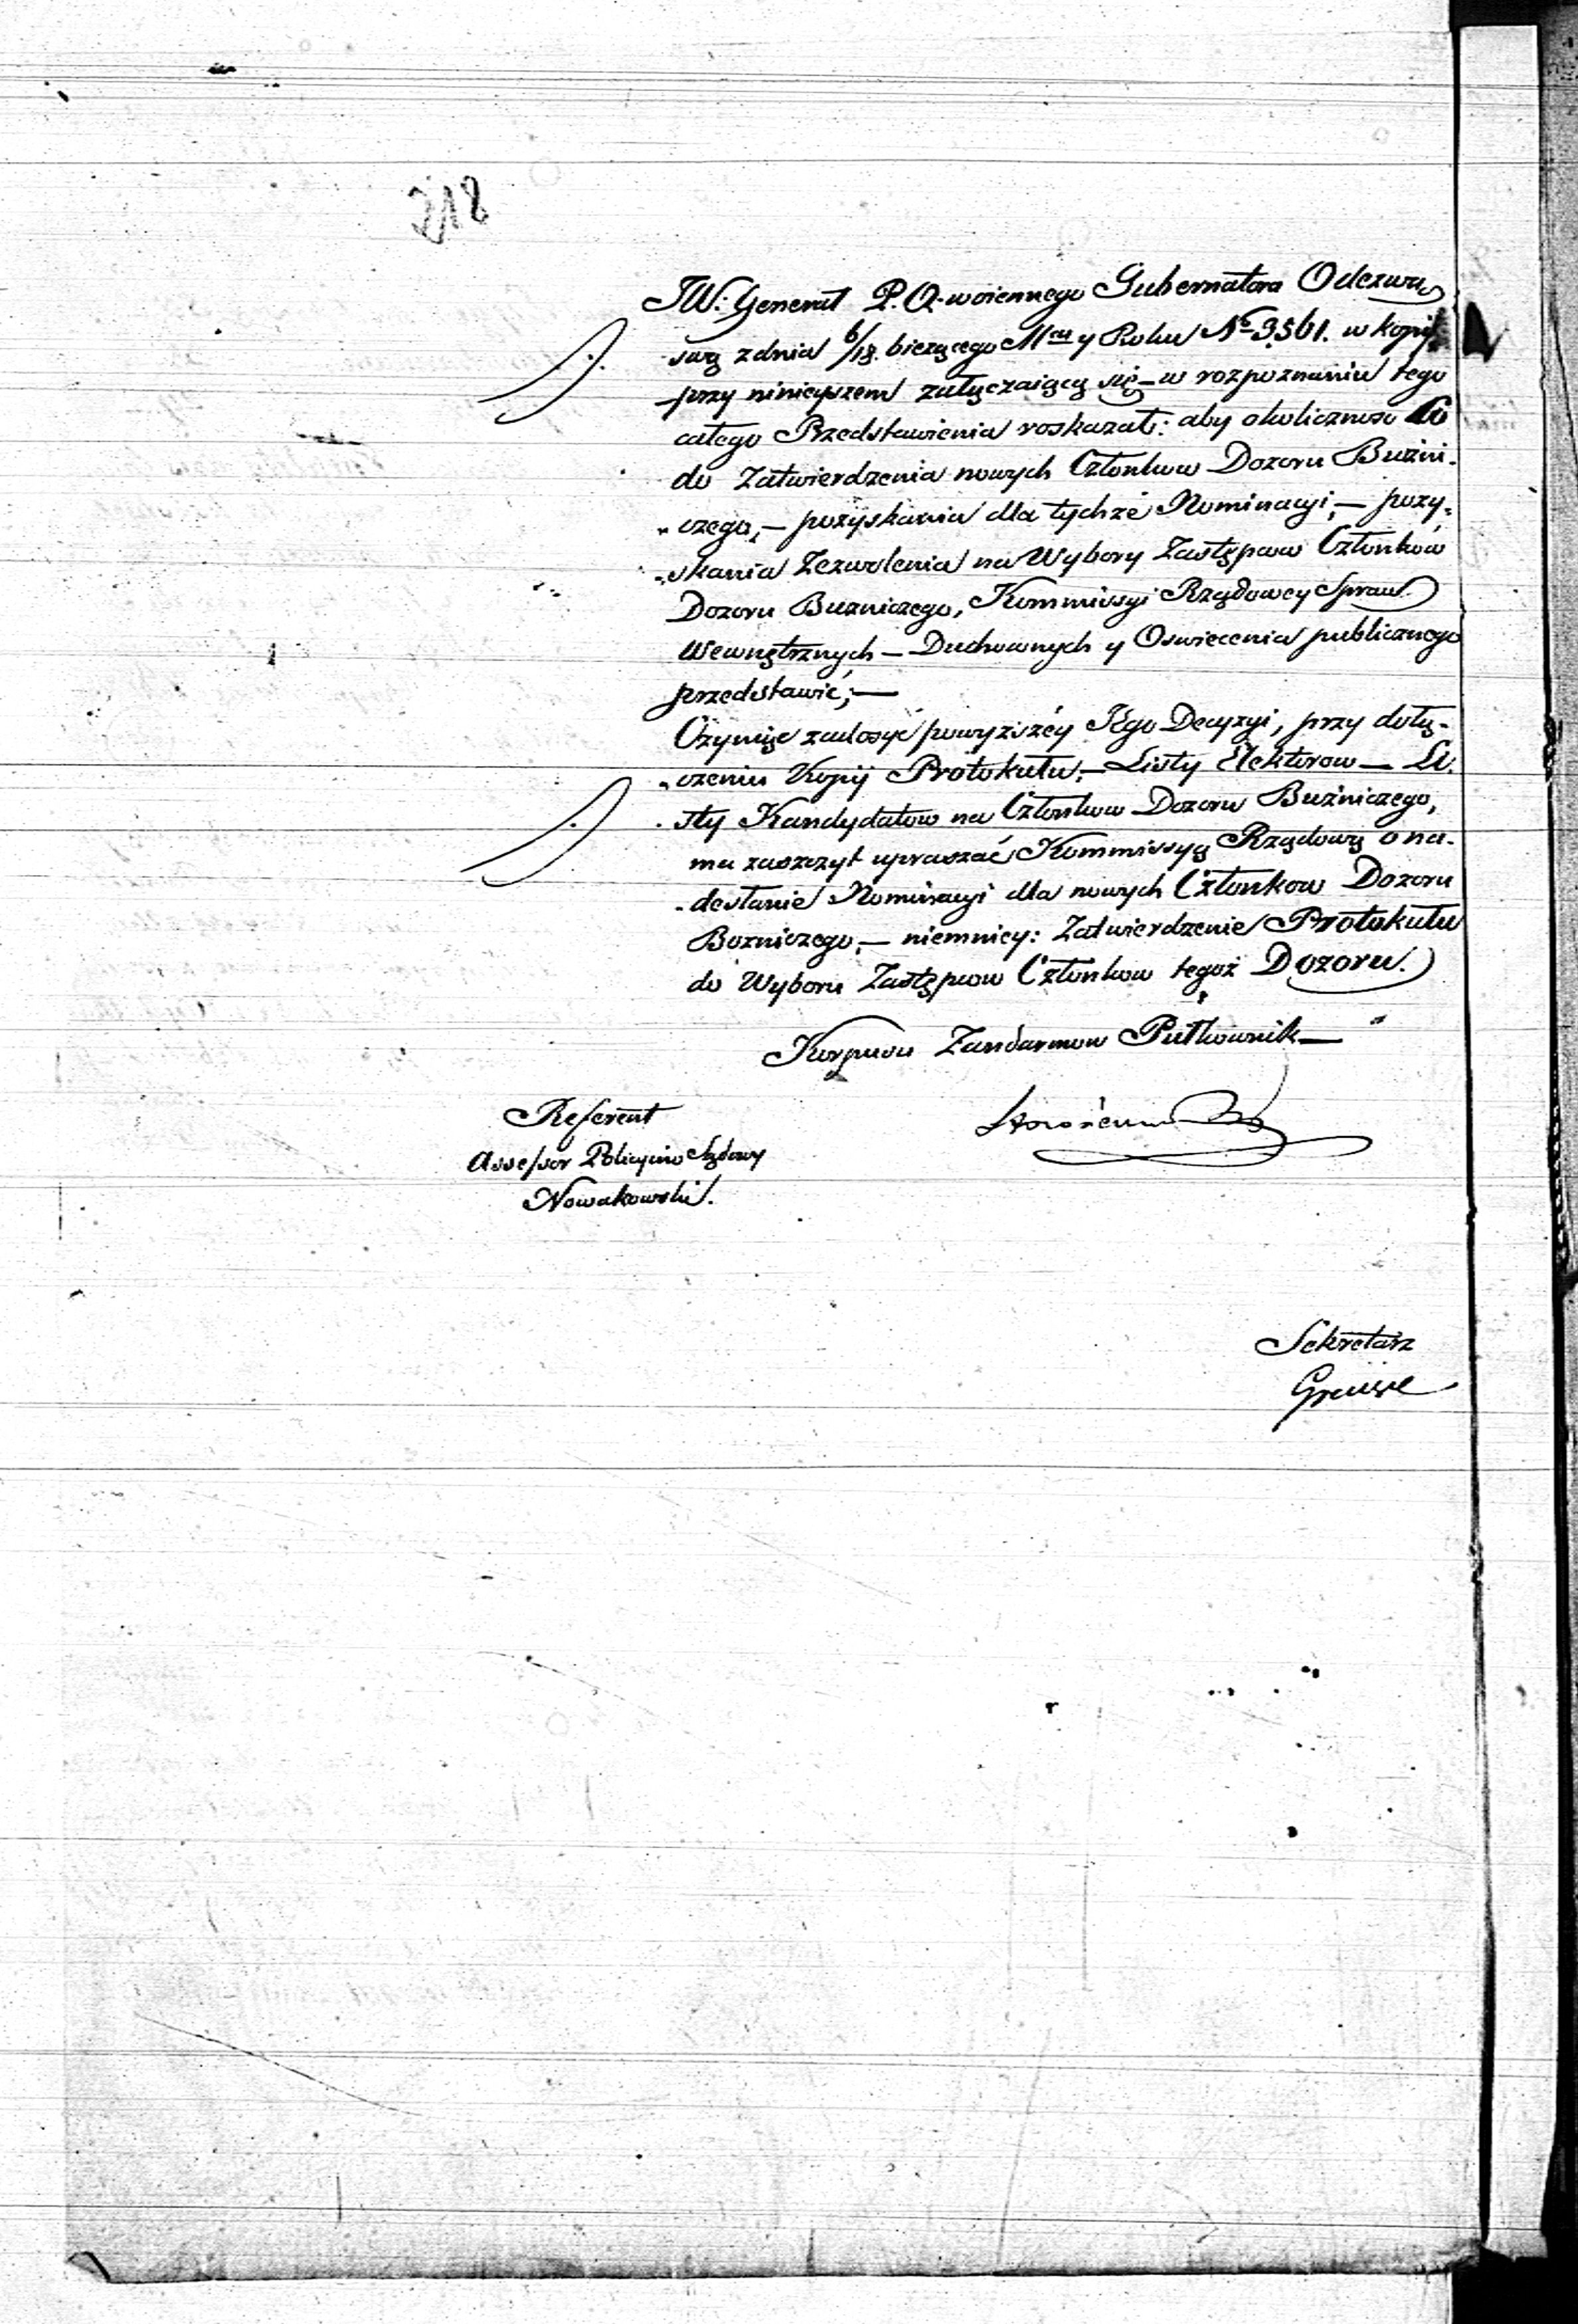 218
JW: Generał P. O. woiennego Gubernatora Odezwą
swą z dnia 6/18. bieżącego Mca y Roku No 3561. w kopij
przy nınieyszem załączaiącą się – w rozpoznaniu tego
całego Przedstawienia roskazał: aby okoliczność tę
do Zatwierdzenia nowych Członkow Dozoru Bużni-
-czego, – pozyskania dla tychże Nominacyi, – pozy-
-skania Zezwolenia na Wybory Zastępcow Członków
Dozoru Buzniczego, Kommissyi Rządowey Spraw
Wewnętrznych – Duchownych y Oswiecenia publicznego
przedstawić; –
Czyniąc zadosyć powyższéy Jego Decyzyi, przy dołą-
-czeniu Kopij Protokułu, – Listy Elektorow – Li-
-sty Kandydatow na Członkow Dozoru Buźniczego,
ma zaszczyt upraszać Kommissyą Rządową o na-
-desłanie Nominacyi dla nowych Członkow Dozoru
Bozniczego, – niemniey: Zatwierdzenie Protokułu
do Wyboru Zastępcow Członkow tegoż Dozoru.
Korpusu Zandarmow Pułkownik –
Referent
Assessor Policyino Sądowy
Nowakowski.
Sekretarz